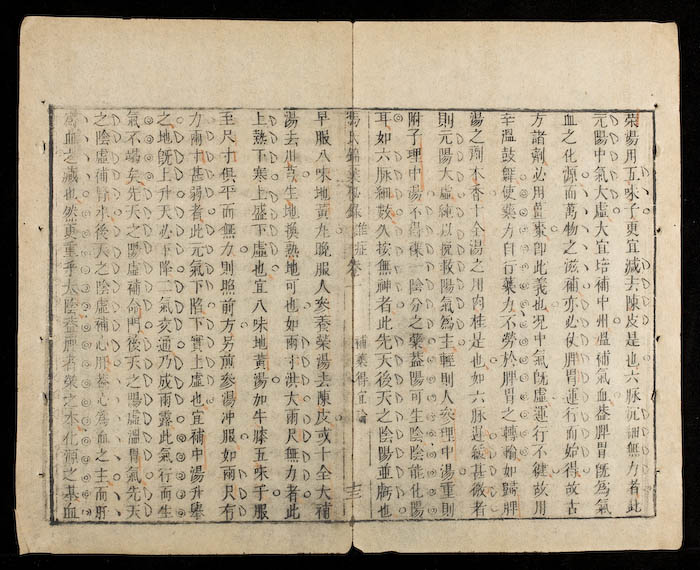 榮湯用五味子更宜減去陳皮是也六脉沉細無力者此
元陽中氣大虛大宜培補中州溫補氣血葢脾胃旣爲氣
血之化源而萬物之滋補亦必仗脾胃運行而始得故古
方諸劑必用薑棗卽此義也况中氣旣虛運行不健故用
辛溫鼓舞使藥力自行藥力不勞於脾胃之轉輸如歸脾
湯之用木香十全湯之用肉桂是也如六脉遲緩甚微者
則元陽大虛純以挽救陽氣爲主輕則人參理中湯重則
附子理中湯不得雜一陰分之藥葢陽可生陰陰能化陽
耳如六脉細數久按無神者此先天後天之陰陽並虧也
馮氏錦囊秘錄 雜症卷 補藥得宜論 十三
早服八味地黄丸晚服人參養榮湯去陳皮或十全大補
湯去川芎生地換熟地可也如兩寸洪大兩尺無力者此
上熱下寒上盛下虛也宜八味地黄湯加牛膝五味子服
至尺寸俱平而無力則照前方另煎參湯冲服如兩尺有
力兩寸甚弱者此元氣下陷下實上虛也宜補中湯升舉
之地旣上升天必下降二氣交通乃成雨露此氣行而生
氣不竭矣先天之陽虛補命門後天之陽虛溫胃氣先天
之陰虛補腎水後天之陰虛補心肝葢心爲血之主而肝
爲血之藏也然更重乎太陰葢脾者榮之本化源之基血